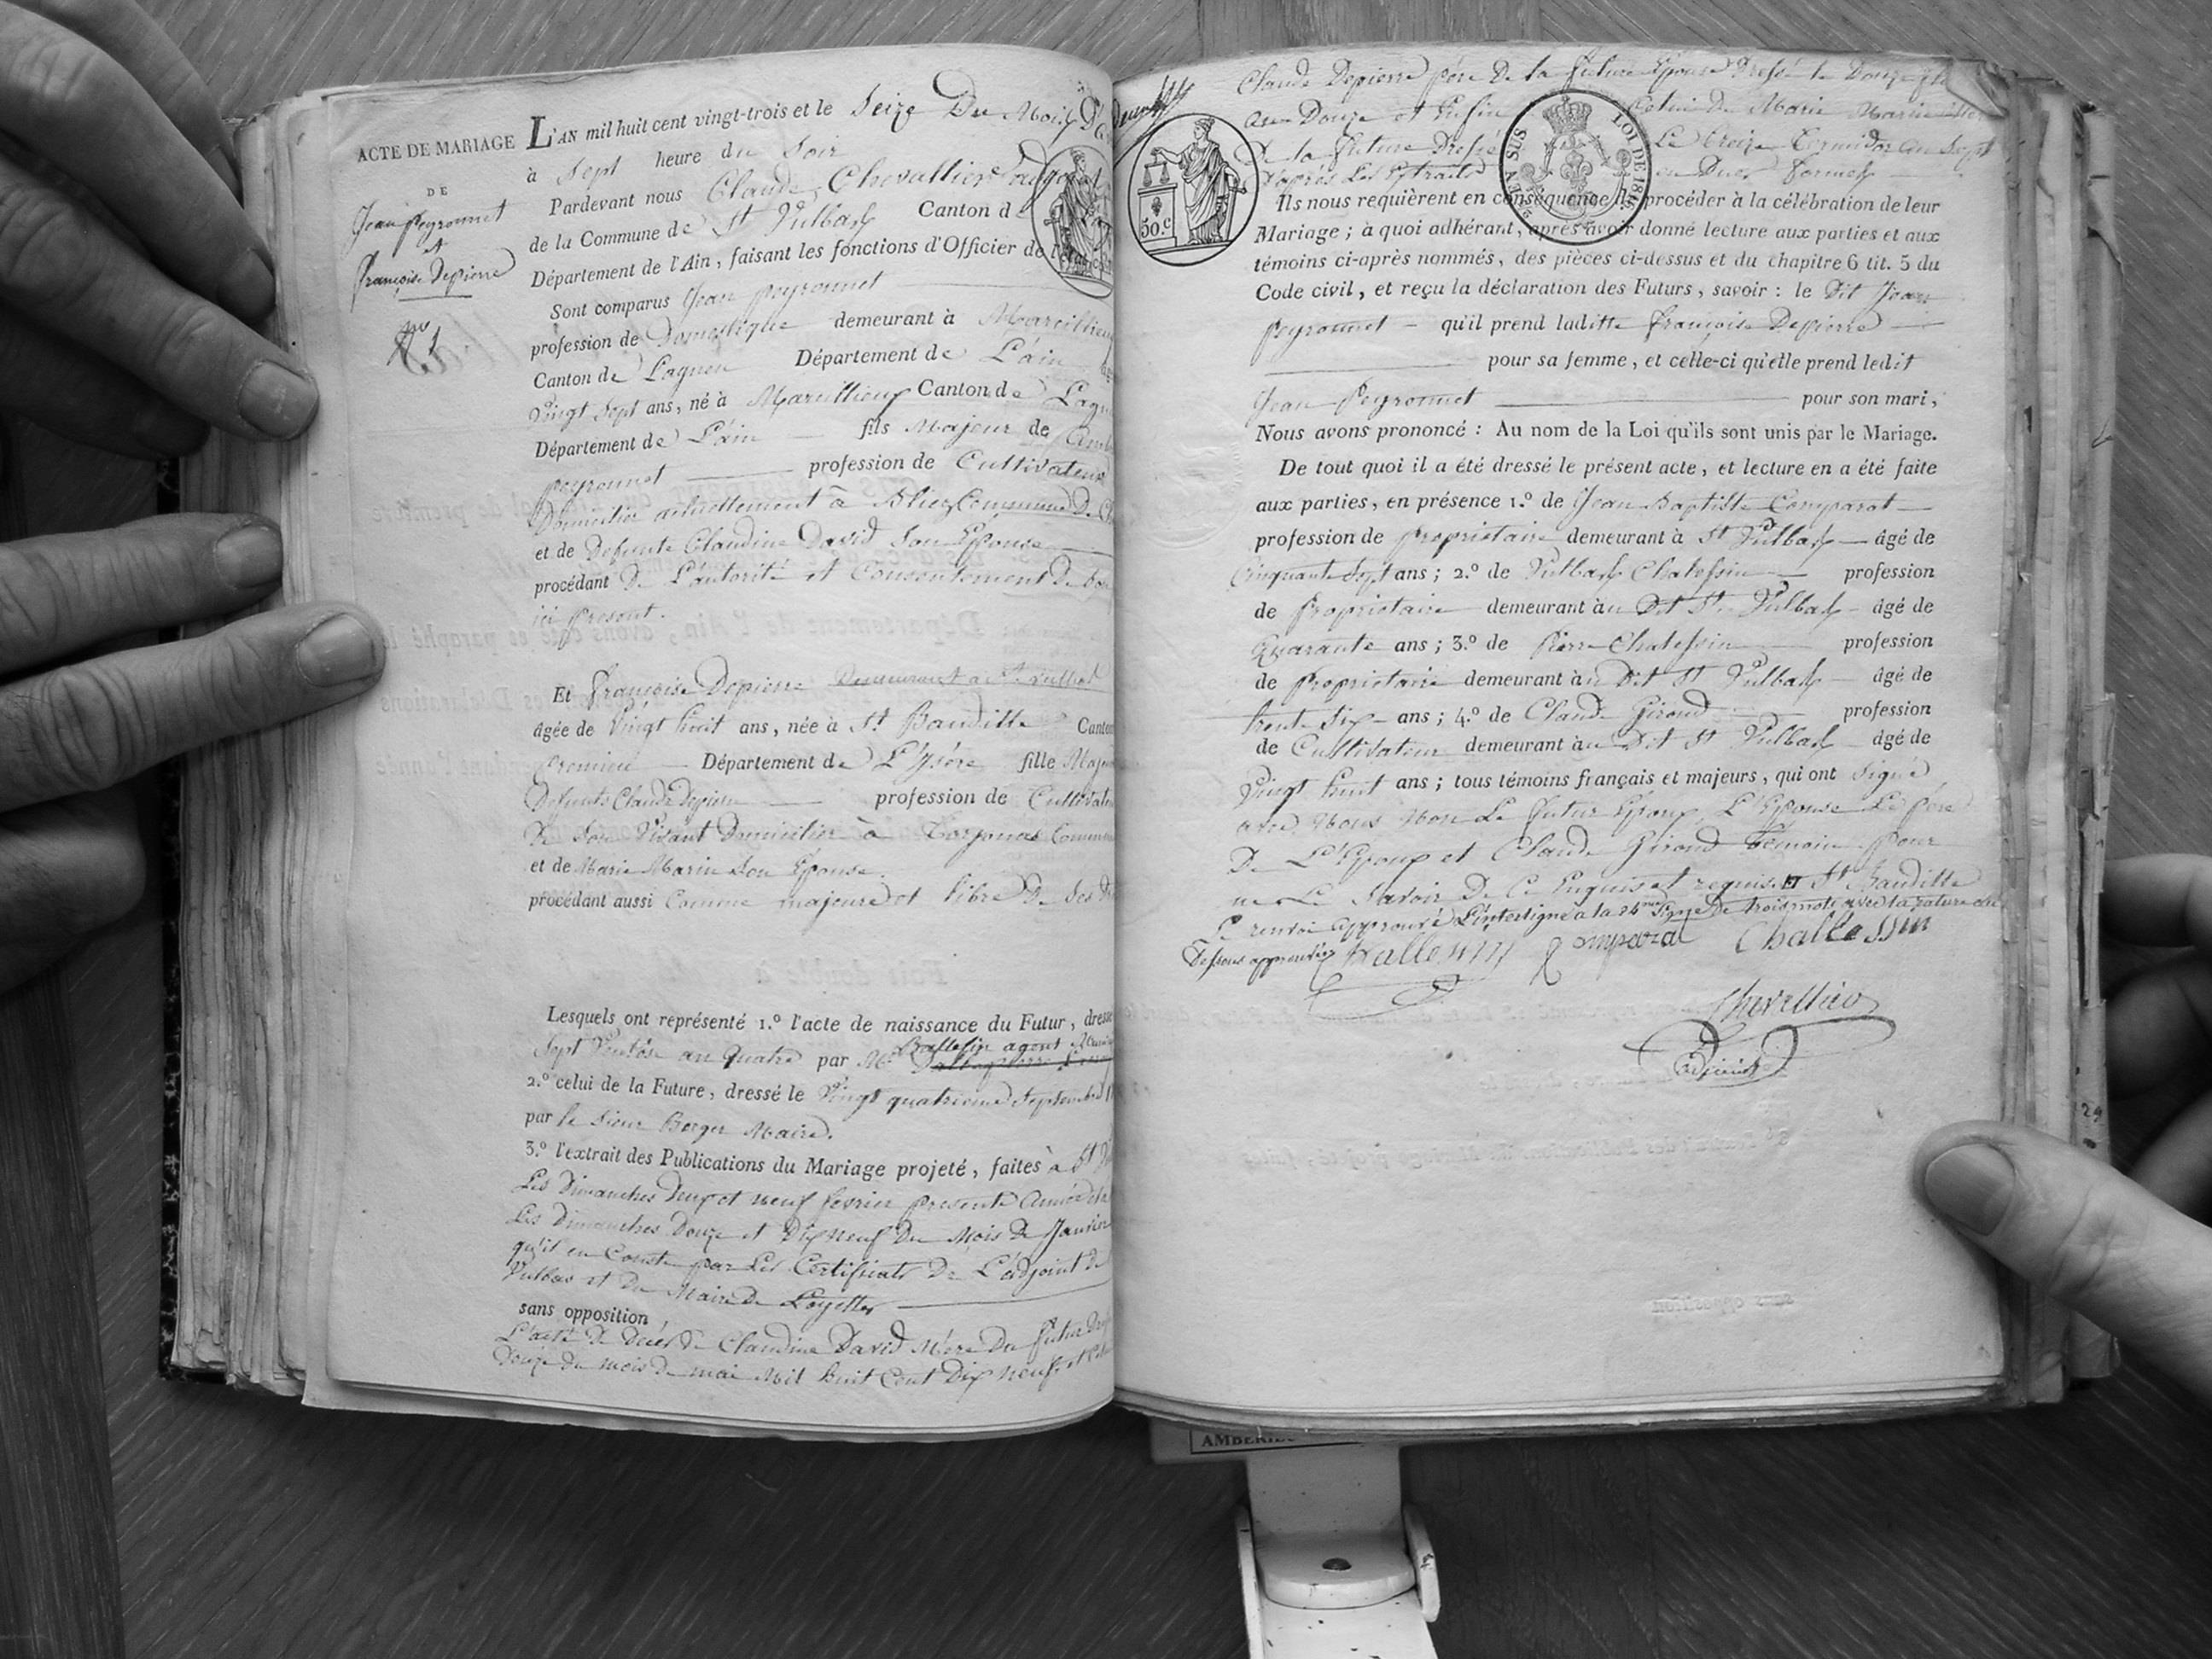 ACTE DE MARIAGE
DE
Jean Peyronnet
et
Françoise Depierre
N° 1
L'AN mil huit cent vingt-trois et le Seize Du Mois
à Sept heure du Soir
Pardevant nous Claude Chevallier
de la Commune de St Vulbas Canton d
Département de l'Ain, faisant les fonctions d'Officier de l'état
Sont comparus Jean peyronnet
profession de Domestique demeurant à Marcillieux
Canton de Lagneu Département de L'ain
Vingt Sept ans, né à Marcillieux Canton de Lagn
Département de L'ain fils Majeur de
peyronnet profession de Cultivateur
Domicilié actuellement à Commune De
et de Defunte Claudine David Son Épouse
procédant De L'autorité et Consentement De
ici present.
Et Françoise Depierre Demeurant a St Vulbas
âgée de Vingt huit ans, née à St Bauditte Canton
Cremieu Département de L'Ysére fille Majeu
Defunts Claude Depierre profession de Cultivateu
De Son Vivant Domicilié à Commune
et de Marie Marin Son Épouse.
procédant aussi Comme majeure et libre De Ses
Lesquels ont représenté 1.º l'acte de naissance du Futur, dressé
Ballesin agent
Sept Ventôse an Quatre par Mr
2.º celui de la Future, dressé le Vingt quatrieme Septembre
par le Sieur Berger Maire.
3.º l'extrait des Publications du Mariage projeté, faites à St
Les Dimanches Deux et neuf fevrier presente Année et
Les Dimanches Douze et Dix neuf Du Mois De Janvier
qu'il en Conste par Les Certificats De L'adjoint De
Vulbas et Du Maire De Loyettes
sans opposition
L'acte De Décès De Claudine David Mère Du futur
Douze Du mois De mai Mil huit Cent Dix neuf et
Claude Depierre père De la future Épouse Dressé le Douze
an Douze et Enfin Celui De Marie Marin
De la future Dressé Le treize Termidor an Sept
D'après Les Extraits en Dues formes
50.c
2.e A SUS
LOI DE 1816
Ils nous requièrent en conséquence de procéder à la célébration de leur
Mariage ; à quoi adhérant, après avoir donné lecture aux parties et aux
témoins ci-après nommés, des pièces ci-dessus et du chapitre 6 tit. 5 du
Code civil, et reçu la déclaration des Futurs, savoir : le Dit Jean
Peyronnet qu'il prend laditte françoise Depierre
pour sa femme, et celle-ci qu'elle prend ledit
Jean Peyronnet pour son mari,
Nous avons prononcé : Au nom de la Loi qu'ils sont unis par le Mariage.
De tout quoi il a été dressé le présent acte, et lecture en a été faite
aux parties, en présence 1.º de Jean Baptiste Comparat
profession de propriétaire demeurant à St Vulbas âgé de
Cinquante Sept ans ; 2.º de Vulbas Chalessin profession
de Propriétaire demeurant àu Dit St Vulbas âgé de
Quarante ans ; 3.º de Pierre Chalessin profession
de propriétaire demeurant àu Dit St Vulbas âgé de
trente Six ans ; 4.º de Claude Girond profession
de Cultivateur demeurant àu Dit St Vulbas âgé de
Vingt huit ans ; tous témoins français et majeurs, qui ont Signé
avec Nous Non Le futur Époux, L'Épouse Le père
De L'Époux et Claude Girond témoin pour
ne Le Savoir De Ce Enquis et requis. St Bauditte
Le renvoi approuvé L'interligne a la 24me Ligne De trois mots avec la rature au
Dessous approuvés Challessin Comparat Challessin
Chevallier
adjoint
24